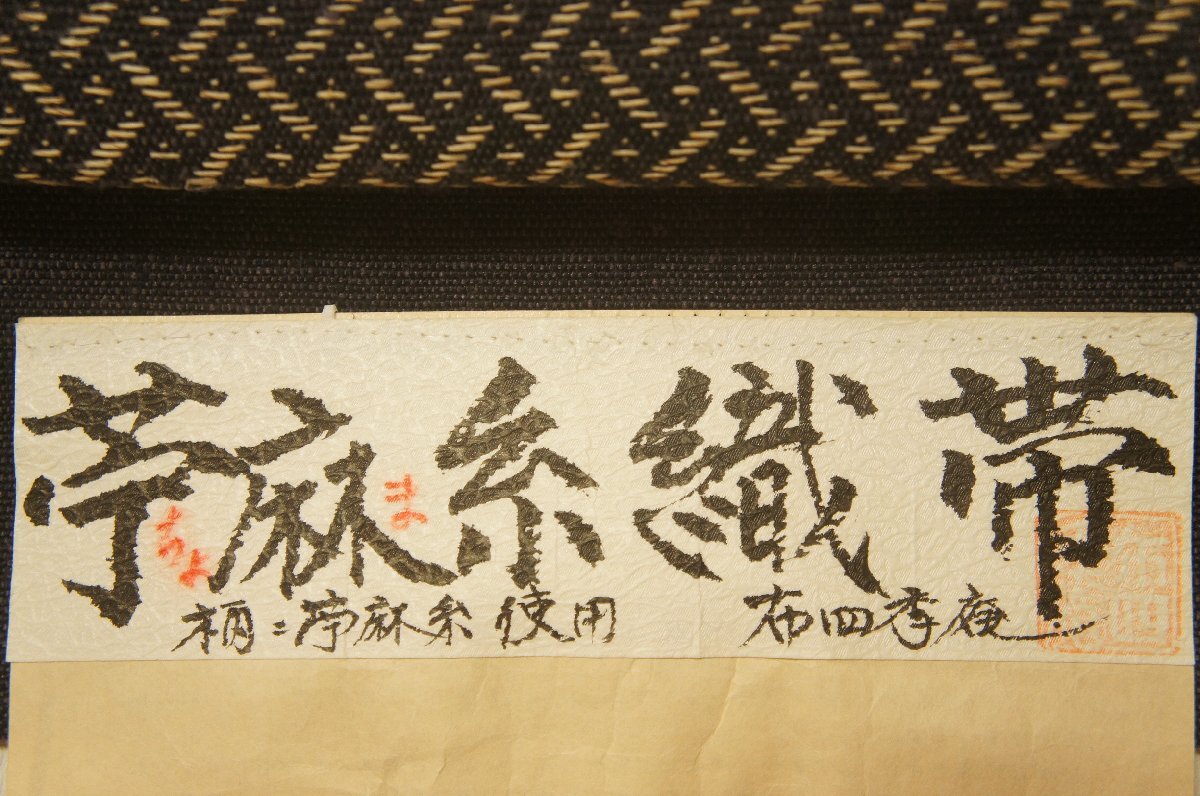 苧麻糸織帯
ちょ ま
柄ニ苧麻糸使用 布四季庵